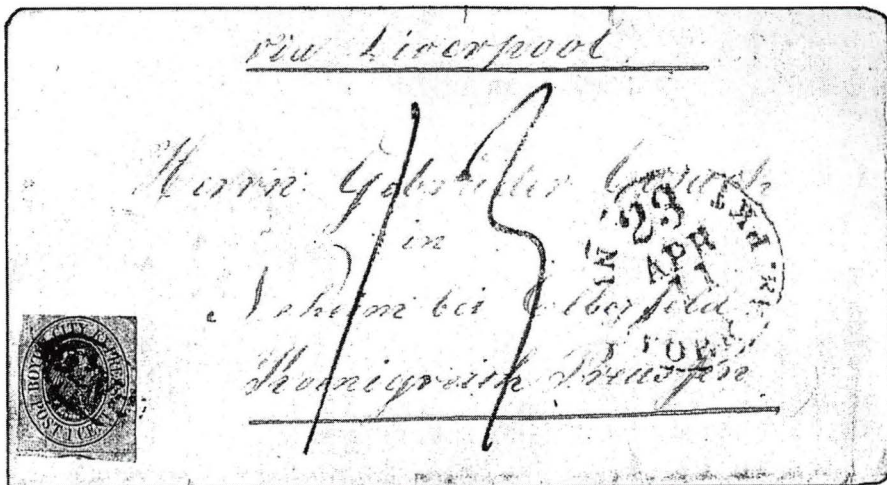 via Liverpool
13
Herrn Gebrüder
in
bei Elberfeld
Koenigreich Preussen
23
APR
11
YORK
PKT
BOYD'S CITY EXPRESS
POST 1 CENT